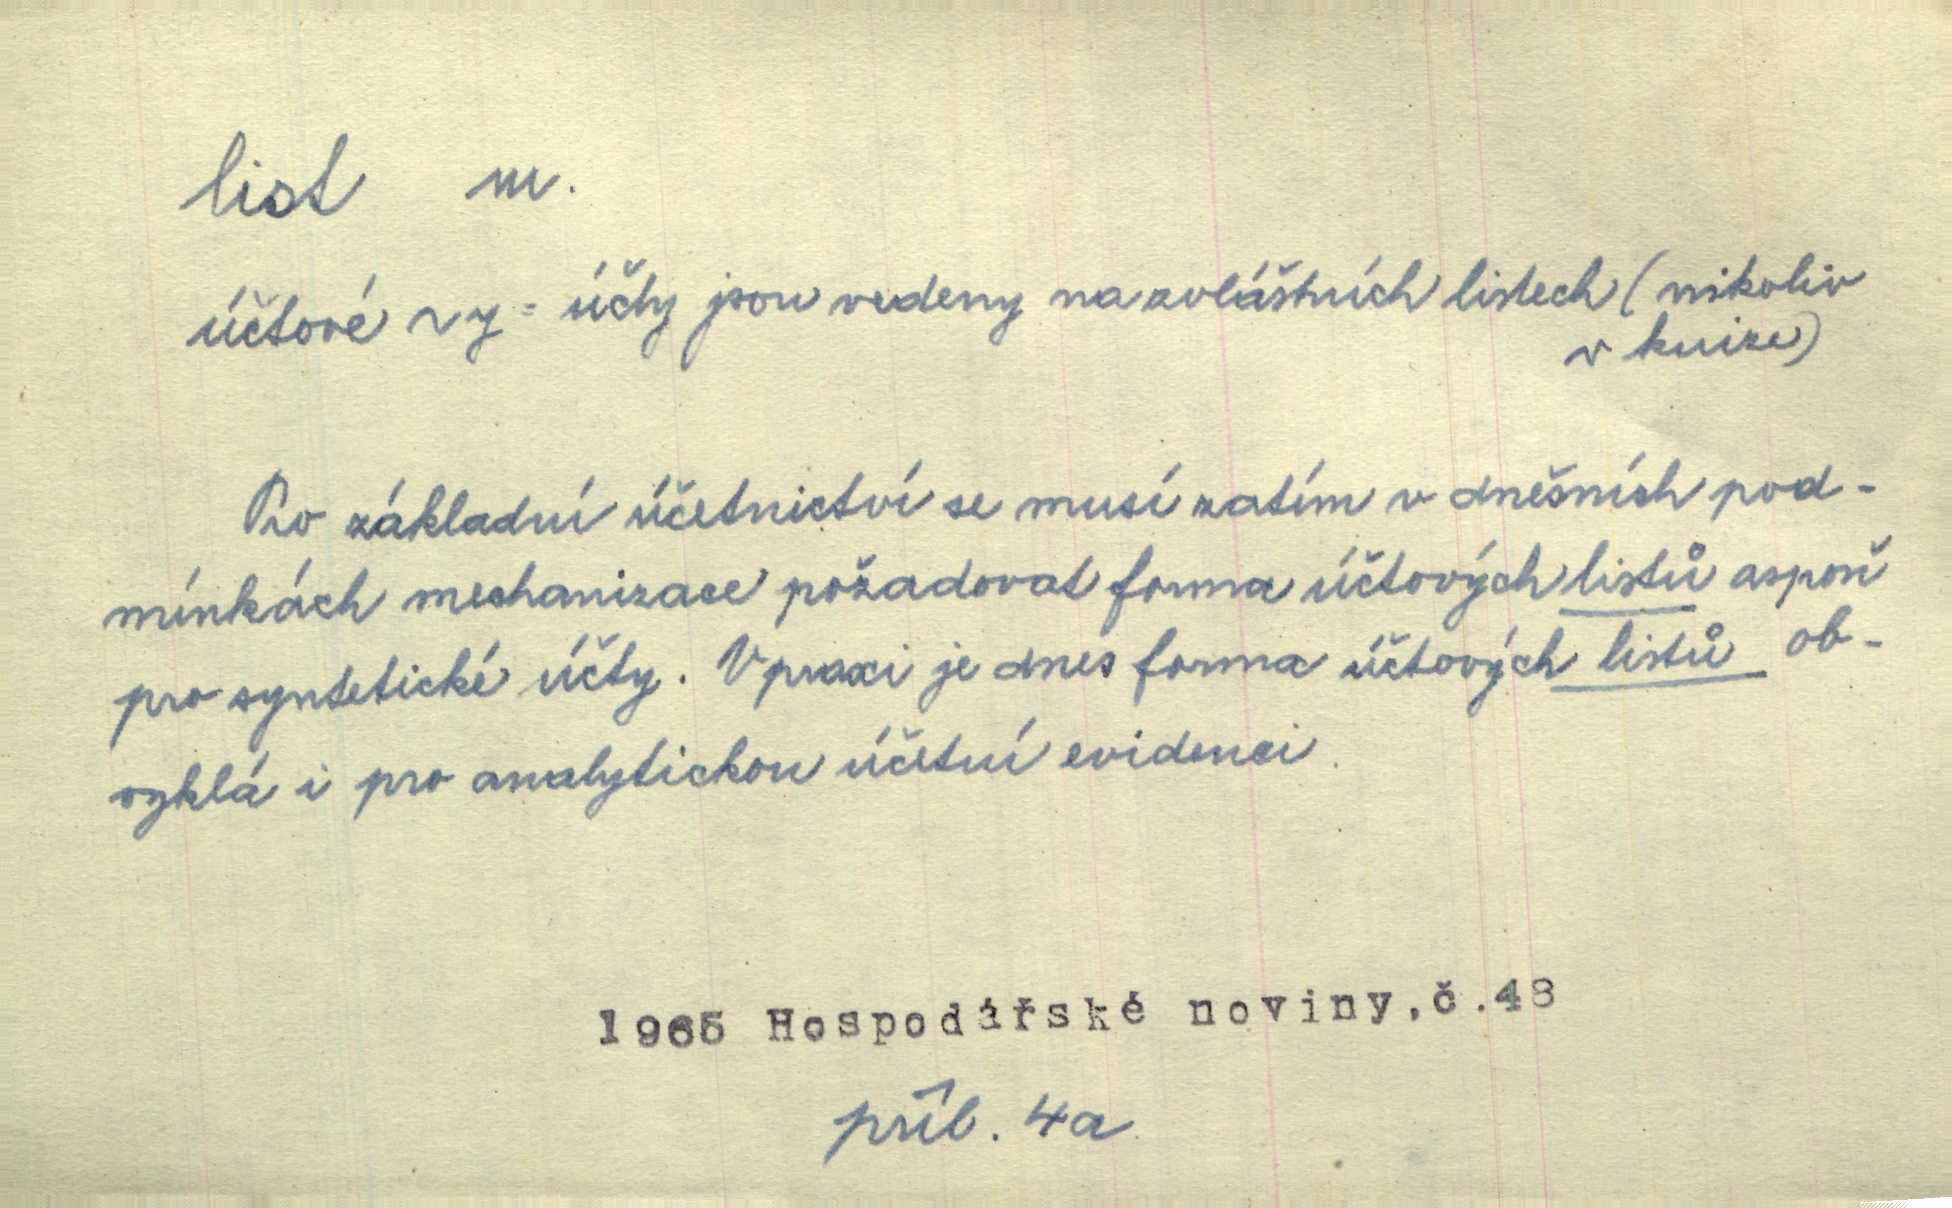 list m.
účtové ~y = účty jsou vedeny na zvláštních listech (nikoliv
v knize)
Pro základní účetnictví se musí zatím v dnešních pod-
mínkách mechanizace požadovat forma účtových listů aspoň
pro syntetické účty. V praxi je dnes forma účtových listů ob-
vyklá i pro analytickou účetní evidenci.
1965 Hospodářské noviny,č.48
příl. 4a